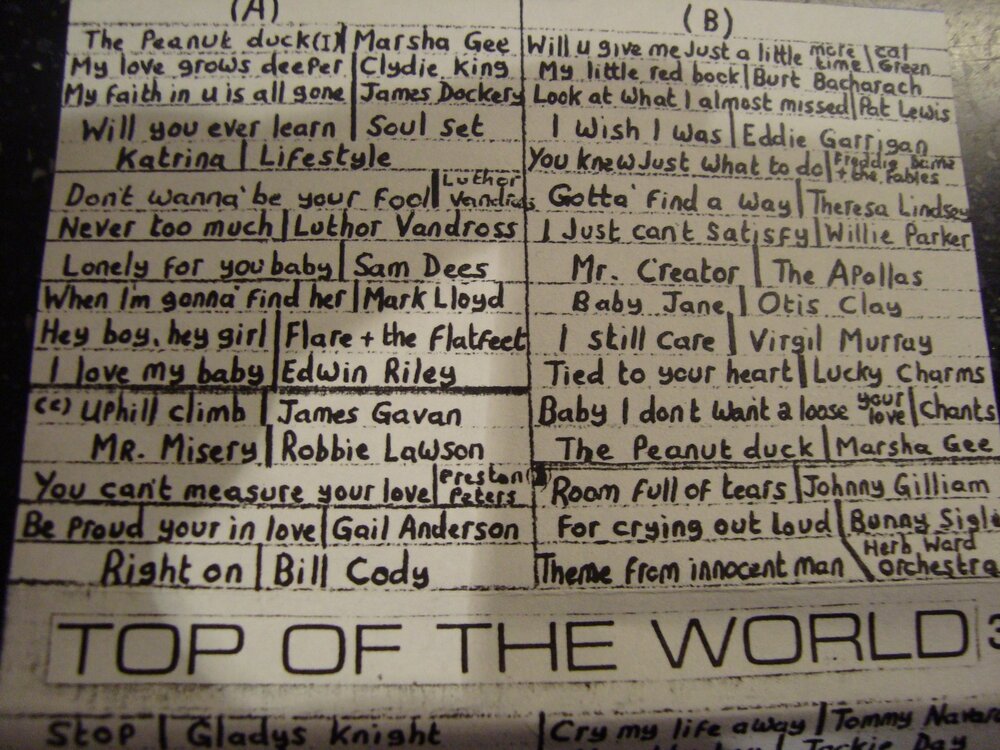 (A)
The Peanut duck (I) | Marsha Gee
My love grows deeper | Clydie King
My faith in u is all gone | James Dockery
Will you ever learn | Soul Set
Katrina | Lifestyle
Don't wanna' be your fool | Luthor Vandross
Never too much | Luthor Vandross
Lonely for you baby | Sam Dees
When I'm gonna' find her | Mark Lloyd
Hey boy, hey girl | Flare + the Flatfeet
I love my baby | Edwin Riley
(c) Uphill climb | James Gavan
MR. Misery | Robbie Lawson
You can't measure your love | Preston Peters
Be Proud your in love | Gail Anderson
Right on | Bill Cody
(B)
Will u give me Just a little more time | Cal Green
My little red book | Burt Bacharach
Look at what I almost missed | Pat Lewis
I wish I was | Eddie Garrigan
You knew Just what to do | Freddie + the Fables
Gotta' find a way | Theresa Lindsey
I Just can't Satisfy | Willie Parker
Mr. Creator | The Apollas
Baby Jane | Otis Clay
I still care | Virgil Murray
Tied to your heart | Lucky Charms
Baby I don't want a loose your love | Chants
The Peanut duck | Marsha Gee
Room full of tears | Johnny Gilliam
For crying out loud | Bunny Sigl
Theme from innocent man \ Herb Ward orchestra
TOP OF THE WORLD 3
Stop | Gladys Knight
Cry my life away | Tommy Navar
Jackie Day